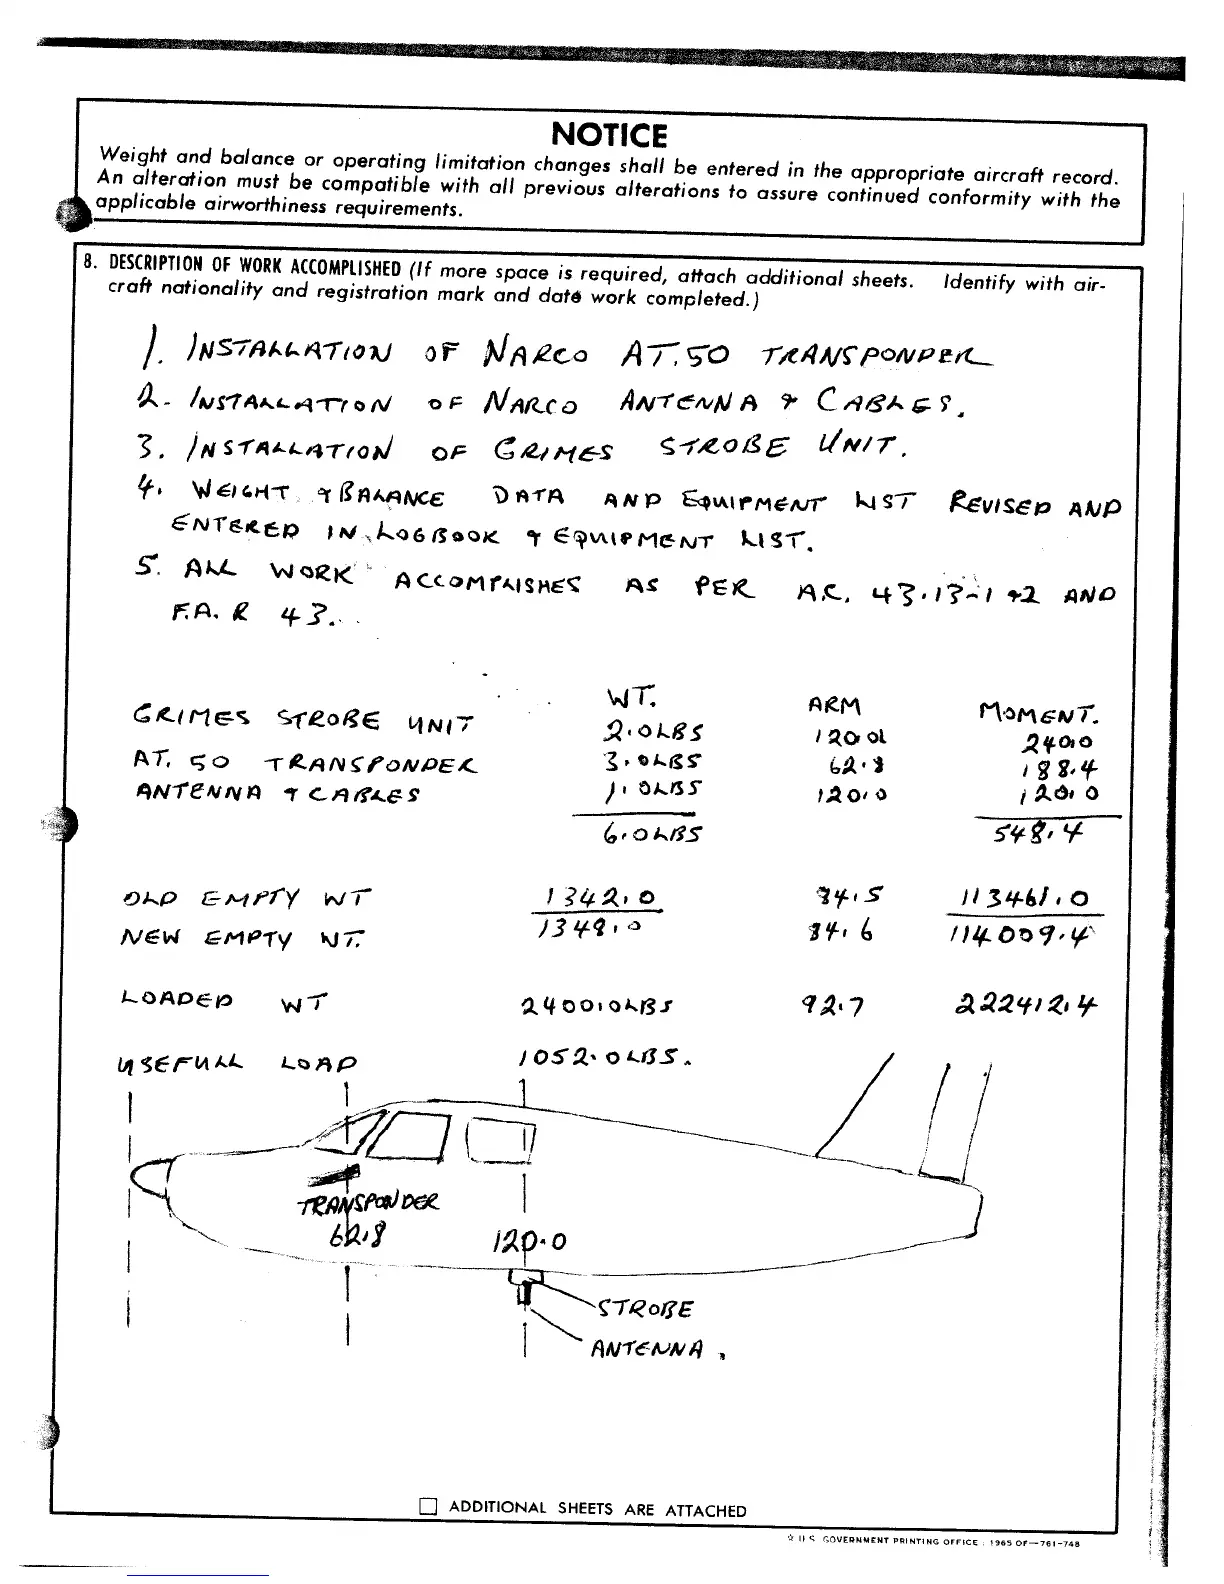 NOTICE
Weight and balance or operating limitation changes shall be entered in the appropriate aircraft record.
An alteration must be compatible with all previous alterations to assure continued conformity with the
applicable airworthiness requirements.
8. DESCRIPTION OF WORK ACCOMPLISHED (If more space is required, attach additional sheets. Identify with air-
craft nationality and registration mark and date work completed.)
1. INSTALLATION OF NARCO AT.50 TRANSPONDER
2. INSTALLATION OF NARCO ANTENNA & CABLES.
3. INSTALLATION OF GRIMES STROBE UNIT.
4. WEIGHT & BALANCE DATA AND EQUIPMENT LIST REVISED AND
ENTERED IN LOGBOOK & EQUIPMENT LIST.
5. ALL WORK ACCOMPLISHES AS PER A.C. 43.13-1 & 2 AND
F.A.R 43.
WT. ARM MOMENT.
GRIMES STROBE UNIT 2.0LBS 120.0 240.0
AT. 50 TRANSPONDER 3.0LBS 62.8 188.4
ANTENNA & CABLES 1.0LBS 120.0 120.0
6.0LBS 548.4
OLD EMPTY WT 1342.0 84.5 113461.0
NEW EMPTY WT. 1348.0 84.6 114009.4
LOADED WT 2400.0LBS 92.7 222412.4
USEFULL LOAD 1052.0 LBS.
TRANSPONDER
62.8 120.0
STROBE
ANTENNA.
ADDITIONAL SHEETS ARE ATTACHED
☆ U.S. GOVERNMENT PRINTING OFFICE : 1965 OF—761-748